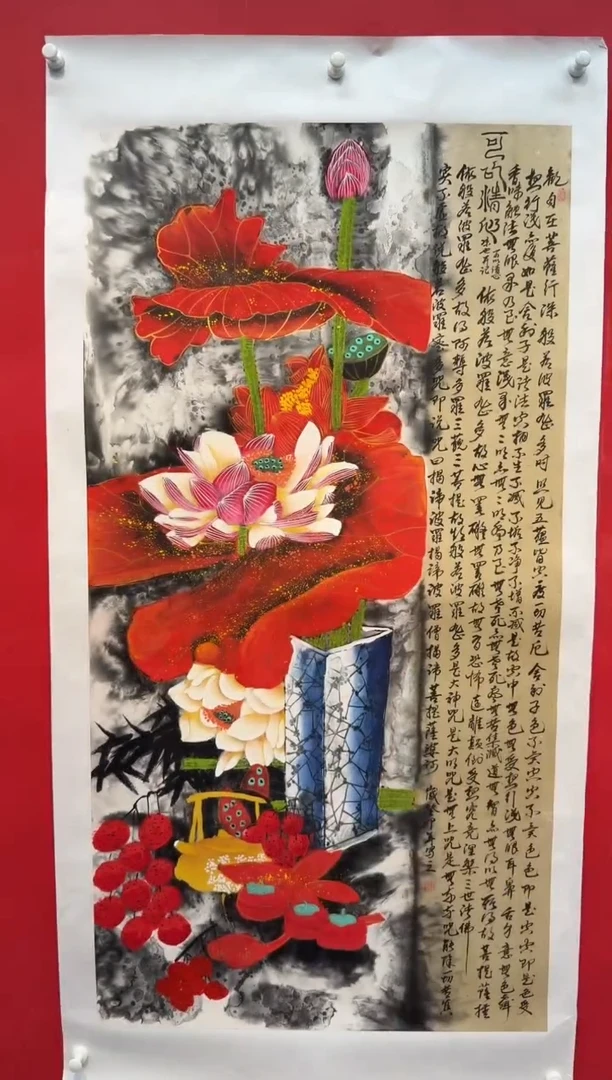 觀自在菩薩行深般若波羅蜜多時照見五蘊皆空度一切苦厄舍利子色不異空空不異色色即是空空即是色受
想行識亦復如是舍利子是諸法空相不生不滅不垢不淨不增不減是故空中無色無受想行識無眼耳鼻舌身意無色聲
香味觸法無眼界乃至無意識界無無明亦無無明盡乃至無老死亦無老死盡無苦集滅道無智亦無得以無所得故菩提薩埵
依般若波羅蜜多故心無罣礙無罣礙故無有恐怖遠離顛倒夢想究竟涅槃三世諸佛
依般若波羅蜜多故得阿耨多羅三藐三菩提故知般若波羅蜜多是大神咒是大明咒是無上咒是無等等咒能除一切苦
實不虛故說般若波羅蜜多咒即說咒曰揭諦波羅揭諦波羅僧揭諦菩提薩婆訶